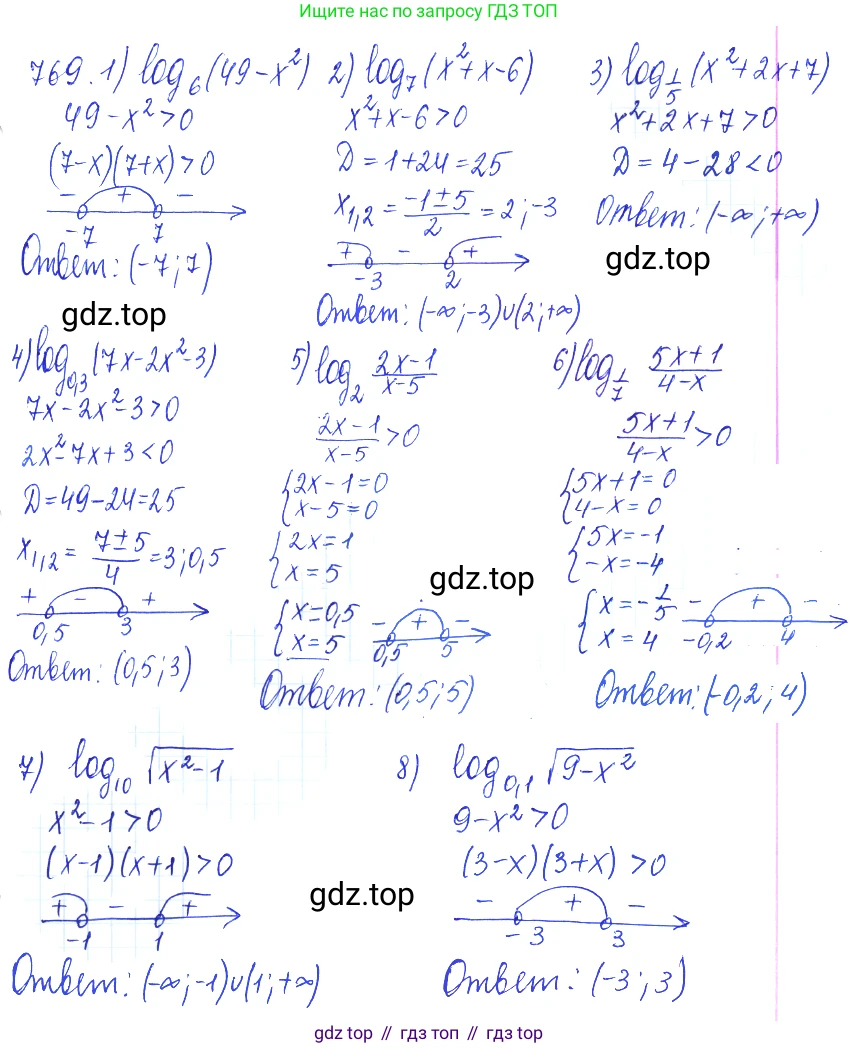 Ищите нас по запросу ГДЗ ТОП
769. 1) log₆(49-x²)
49-x²>0
(7-x)(7+x)>0
- + -
-7 7
Ответ: (-7;7)
2) log₇(x²+x-6)
x²+x-6>0
D=1+24=25
x₁,₂=(-1±5)/2=2;-3
+ - +
-3 2
Ответ: (-∞;-3)∪(2;+∞)
3) log_{1/5}(x²+2x+7)
x²+2x+7>0
D=4-28<0
Ответ: (-∞;+∞)
gdz.top
gdz.top
4) log₀,₃(7x-2x²-3)
7x-2x²-3>0
2x²-7x+3<0
D=49-24=25
x₁,₂=(7±5)/4=3;0,5
+ - +
0,5 3
Ответ: (0,5;3)
5) log₂ (2x-1)/(x-5)
(2x-1)/(x-5)>0
{2x-1=0
x-5=0
{2x=1
x=5
{x=0,5
x=5
- + -
0,5 5
Ответ: (0,5;5)
6) log_{1/7} (5x+1)/(4-x)
(5x+1)/(4-x)>0
{5x+1=0
4-x=0
{5x=-1
-x=-4
{x=-1/5
x=4
- + -
-0,2 4
Ответ: (-0,2;4)
gdz.top
7) log₁₀ √(x²-1)
x²-1>0
(x-1)(x+1)>0
+ - +
-1 1
Ответ: (-∞;-1)∪(1;+∞)
8) log₀,₁ √(9-x²)
9-x²>0
(3-x)(3+x)>0
- + -
-3 3
Ответ: (-3;3)
gdz.top
gdz top // гдз топ // gdz top